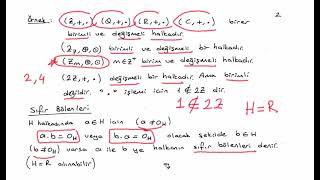 Örnek: (Z,+,.) (Q,+,.), (R,+,.), (C,+,.) birer
2
birimli ve değişmeli halkadır.
birimli ve değişmeli bir halkadır.
(Zm,⊕,⊙) m∈Z⁺ birim ve değişmeli halkadır.
2,4
(2Z,+,.) değişmeli halkadır. Ama birimli
değildir. "." işlemi için 1∉2Z dir.
1∉2Z
H=R
Sıfır Bölenleri
H halkasında a∈H için (a≠0H)
a.b=0H veya b.a=0H olacak şekilde b∈H
(b≠0H) varsa a ile b ye halkanın sıfır bölenleri denir.
(H=R alınabilir)